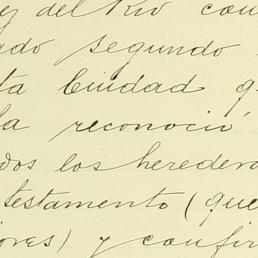 y del Rio con
ado segundo
ta Ciudad q
la reconoció
dos los heredero
testamento (que
ores) y confir